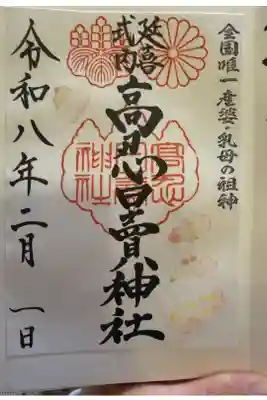 全国唯一産婆・乳母の祖神
延喜
式内
高忍日賣神社
令和八年二月 一日